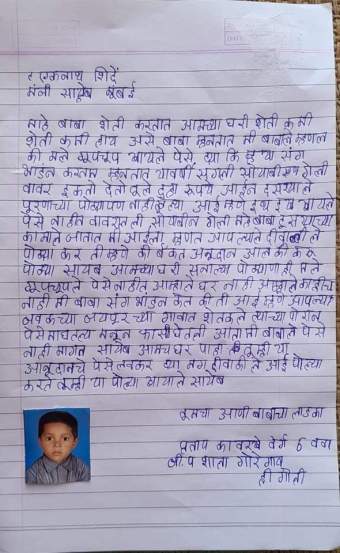 र एकनाथ शिंदें
मंत्री साहेब मुंबई
माहे बाबा शेती करतात आमच्या घरी शेती कमी
शेती कमी हाय असे बाबा म्हनतात मी बाबाले म्हणल
की मले गुपचूप खायले पैसे द्या कि
भांडन करतात म्हनतात यावर्षी सगळी सोयाबीन गेली
वावर इकतो देतो तुले दहा रूपये आईन दसऱ्याले
पूरणाच्या पोळ्यापण नाही केल्या आई म्हणे इख खायले
पैसे नाहीत वावरातली सोयाबीन गेली बाबा दुसऱ्याच्या
कामाले जातात मी आईला म्हणत आपल्याले दीवाळीले
पोळ्या कर ती म्हणे की बँकत अनूदान आल की करू
पोळ्या सायेब आमच्या घरी सनाल्या पोळ्यापण नाही मले
पैसे नाहीत आम्हाले घर नाही आम्हाले काहीच
नाही मी बाबा संग भांडन केल की ती आई म्हणे आपल्या
जवळच्या जयपूर च्या गावात शेतकले त्याच्या पोरान
पैसे मांगतल्या म्हनून फाशी घेतली आता मी बाबाले पैसे
नाही मागत सायेब आमच घर पाहा तूम्ही या
आनूदानचे पैसे लवकर द्या मंग दीवाळीले आई पोळ्या
करते तूम्ही या पोळ्या खायाले सायेब
तूमचा आणी बाबांचा लाडका
प्रताप कावरखे वर्ग 6 ववा
जी.प शाळा गोरेगाव